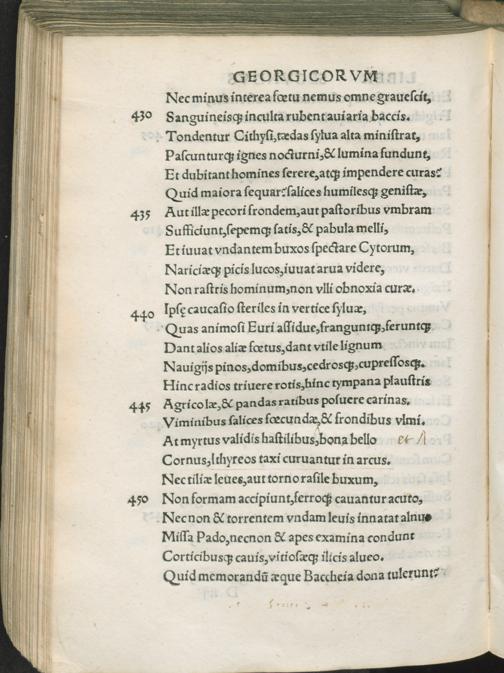 GEORGICORVM
Nec minus interea fœtu nemus omne grauescit,
430 Sanguineisq; inculta rubent auiaria baccis.
Tondentur Cithysi, tædas sylua alta ministrat,
Pascunturq; ignes nocturni, & lumina fundunt,
Et dubitant homines serere, atq; impendere curas?
Quid maiora sequar? salices humilesq; genistæ,
435 Aut illæ pecori frondem, aut pastoribus vmbram
Sufficiunt, sepemq; satis, & pabula melli,
Et iuuat vndantem buxos spectare Cytorum,
Nariciæq; picis lucos, iuuat arua videre,
Non rastris hominum, non vlli obnoxia curæ.
440 Ipsę caucasio steriles in vertice syluæ,
Quas animosi Euri assidue, franguntq; feruntq;
Dant alios aliæ fœtus, dant vtile lignum
Nauigijs pinos, domibus, cedrosq; cupressosq;
Hinc radios triuere rotis, hinc tympana plaustris
445 Agricolæ, & pandas ratibus posuere carinas.
Viminibus salices fœcundæ, & frondibus vlmi.
At myrtus validis hastilibus, bona bello et
Cornus, Ithyreos taxi curuantur in arcus.
Nec tiliæ leues, aut torno rasile buxum,
450 Non formam accipiunt, ferroq; cauantur acuto,
Nec non & torrentem vndam leuis innatat alnus
Missa Pado, nec non & apes examina condunt
Corticibusq; cauis, vitiosæq; ilicis alueo.
Quid memorandũ æque Baccheia dona tulerunt?